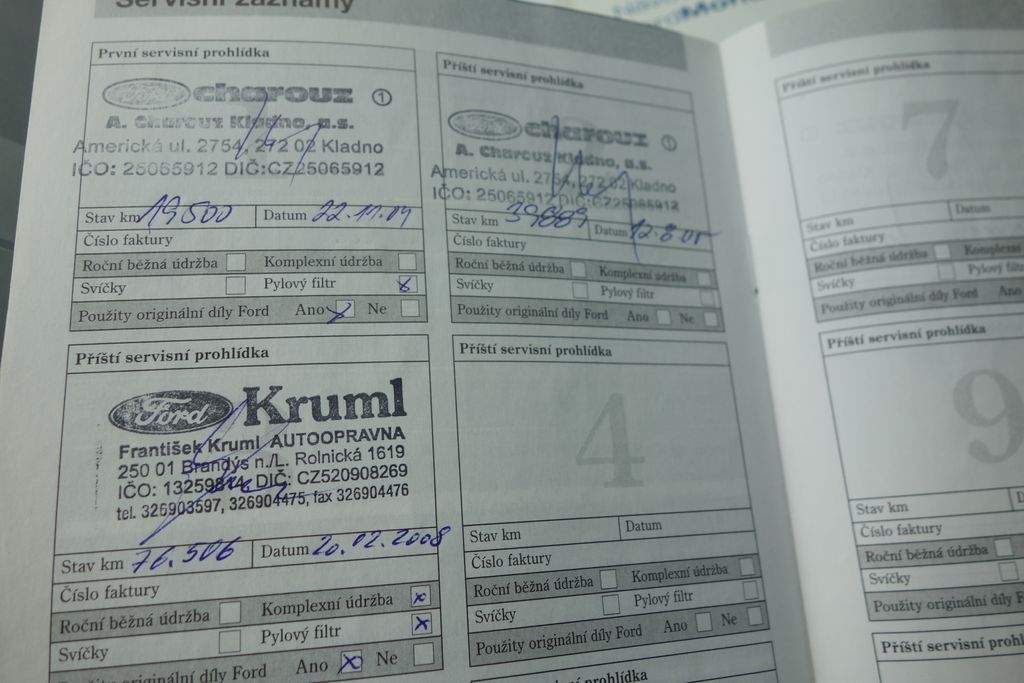 Servisní záznamy
První servisní prohlídka
charouz 1
A. Charouz Kladno, a.s.
Americká ul. 2754, 272 02 Kladno
IČO: 25065912 DIČ:CZ25065912
Stav km 19500 Datum 22.11.04
Číslo faktury
Roční běžná údržba Komplexní údržba
Svíčky Pylový filtr x
Použity originální díly Ford Ano x Ne
Příští servisní prohlídka
charouz 1
A. Charouz Kladno, a.s.
Americká ul. 2754, 272 02 Kladno
IČO: 25065912 DIČ:CZ25065912
Stav km 39889 Datum 12.8.05
Číslo faktury
Roční běžná údržba Komplexní údržba
Svíčky Pylový filtr
Použity originální díly Ford Ano Ne
Příští servisní prohlídka
Ford Kruml
František Kruml AUTOOPRAVNA
250 01 Brandýs n./L. Rolnická 1619
IČO: 13259814, DIČ: CZ520908269
tel. 326903597, 326904475, fax 326904476
Stav km 76.506 Datum 20.02.2008
Číslo faktury
Roční běžná údržba Komplexní údržba x
Svíčky Pylový filtr x
Použity originální díly Ford Ano x Ne
Příští servisní prohlídka
4
Stav km Datum
Číslo faktury
Roční běžná údržba Komplexní údržba
Svíčky Pylový filtr
Použity originální díly Ford Ano Ne
prohlídka
Příští servisní prohlídka
7
Stav km Datum
Číslo faktury
Roční běžná údržba Komplexní
Svíčky Pylový filtr
Použity originální díly Ford Ano
Příští servisní prohlídka
9
Stav km
Číslo faktury
Roční běžná údržba
Svíčky
Použity originální díly
Příští servisní